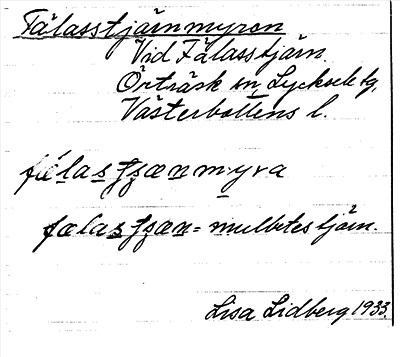 Fälasstjärnmyren
Vid Fälasstjärn.
Örträsk sn, Lycksele tg,
Västerbottens l.
fælastjænmyra
fælastjæn = mulbetestjärn.
Lisa Lidberg 1933.